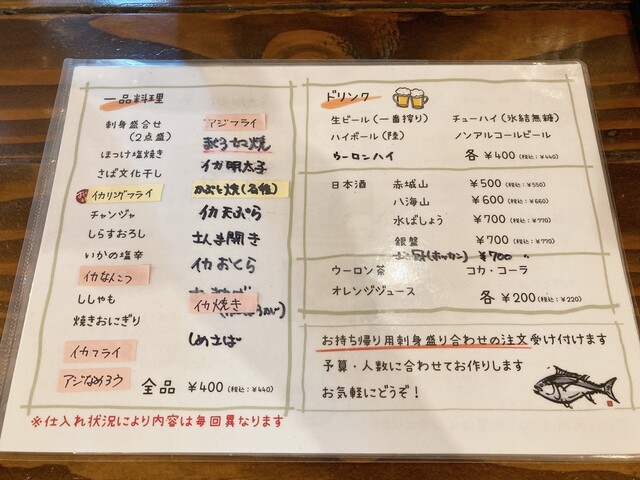 一品料理
刺身盛合せ
(2点盛)
ほっけ塩焼き
さば文化干し
イカリングフライ
チャンジャ
しらすおろし
いかの塩辛
イカなんこつ
ししゃも
焼きおにぎり
イカフライ
アジなめろう
アジフライ
イカ明太子
かぶと焼(名物)
イカ天ぷら
さんま開き
イカおくら
イカ焼き
しめさば
全品 ¥400(税込:¥440)
※仕入れ状況により内容は毎回異なります
ドリンク
生ビール(一番搾り) チューハイ(氷結無糖)
ハイボール(陸) ノンアルコールビール
ウーロンハイ 各 ¥400(税込:¥440)
日本酒 赤城山 ¥500(税込:¥550)
八海山 ¥600(税込:¥660)
水ばしょう ¥700(税込:¥770)
銀盤 ¥700(税込:¥770)
¥700 〃
ウーロン茶 コカ・コーラ
オレンジジュース 各 ¥200(税込:¥220)
お持ち帰り用刺身盛り合わせの注文受け付けます
予算・人数に合わせてお作りします
お気軽にどうぞ!